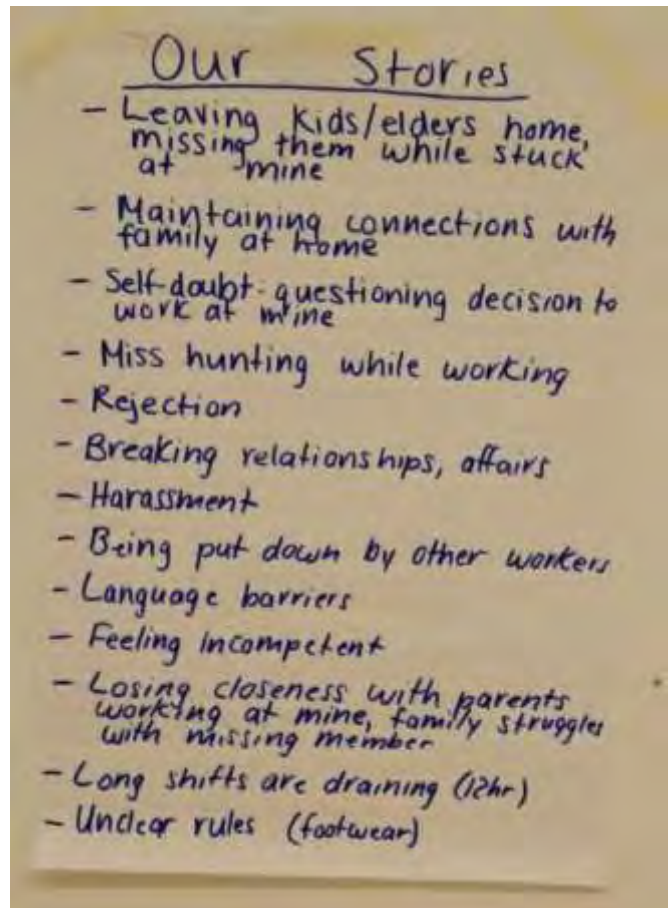 Our Stories
- Leaving kids/elders home,
missing them while stuck
at mine
- Maintaining connections with
family at home
- Self-doubt-questioning decision to
work at mine
- Miss hunting while working
- Rejection
- Breaking relationships, affairs
- Harassment
- Being put down by other workers
- Language barriers
- Feeling incompetent
- Losing closeness with parents
working at mine, family struggles
with missing member
- Long shifts are draining (12hr)
- Unclear rules (footwear)